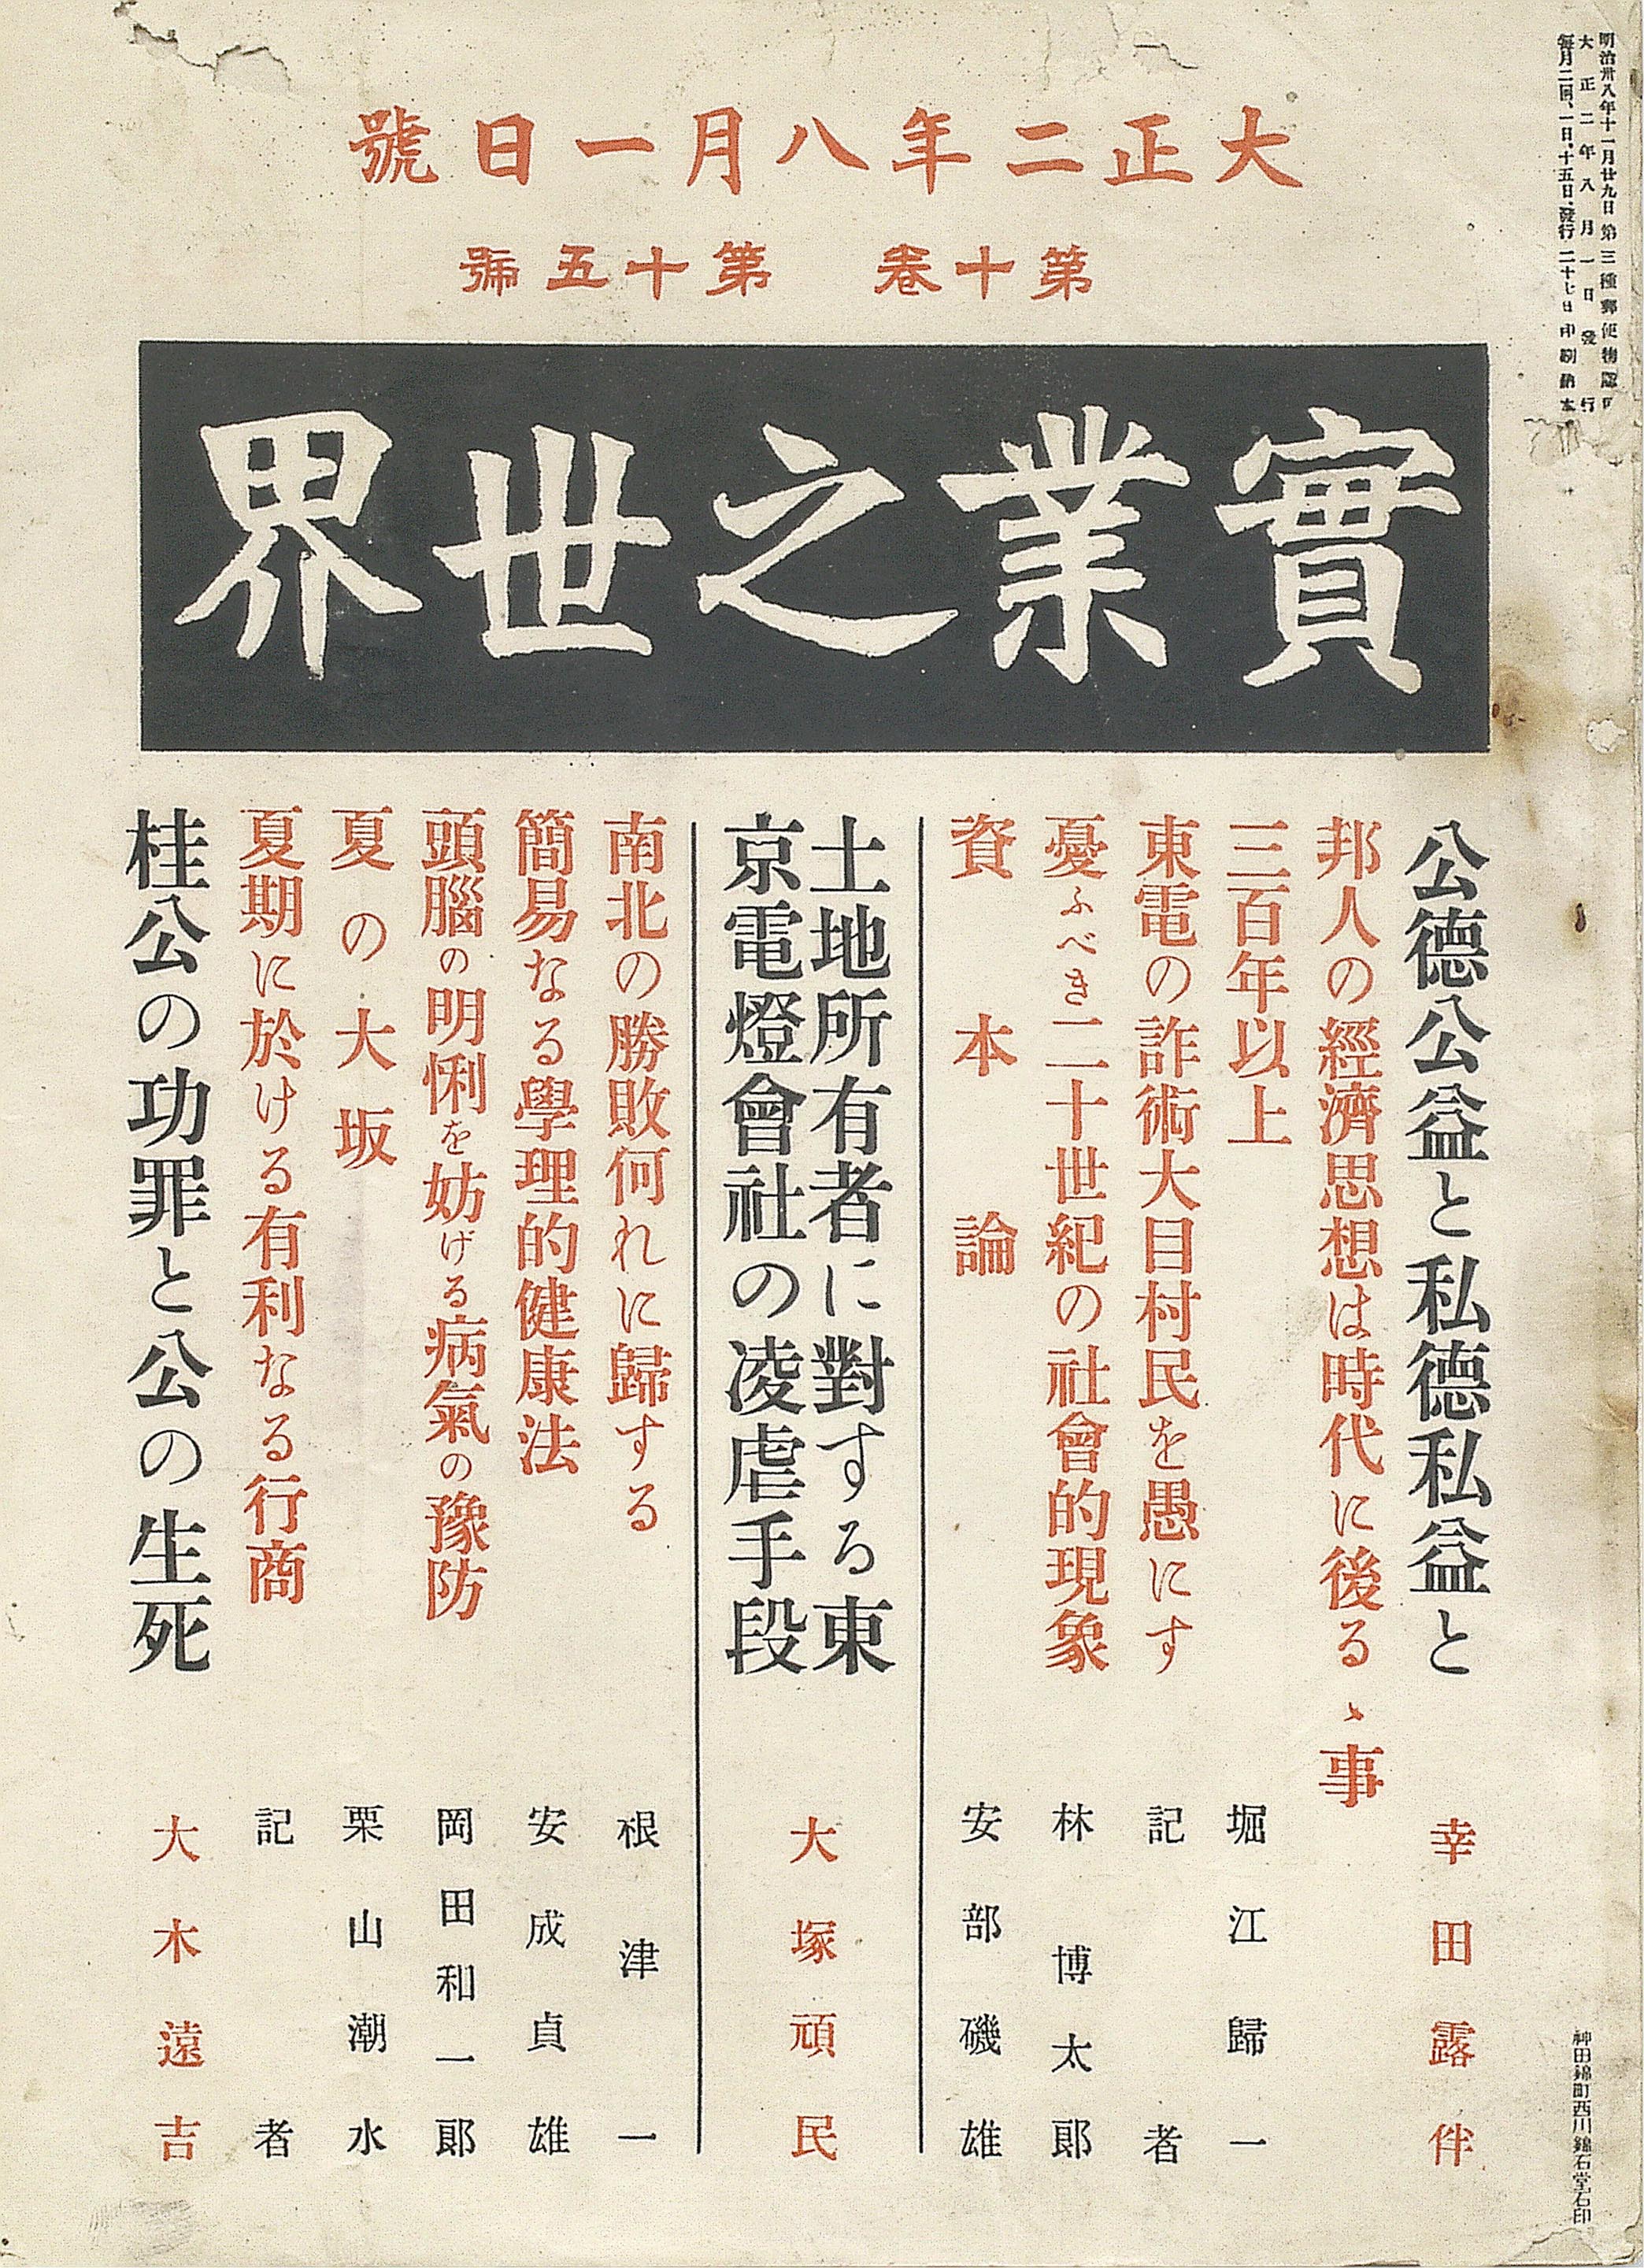 明治卅八年十一月廿九日第三種郵便物認可
大正二年八月一日發行
毎月二回、一日、十五日、發行 二十七日印刷納本
大正二年八月一日號
第十卷 第十五號
實業之世界
公德公益と私德私益と 幸田露伴
邦人の經濟思想は時代に後るゝ事
三百年以上 堀江歸一
東電の詐術大目村民を愚にす 記者
憂ふべき二十世紀の社會的現象 林博太郞
資本論 安部磯雄
土地所有者に對する東
京電燈會社の凌虐手段 大塚頑民
南北の勝敗何れに歸する 根津一
簡易なる學理的健康法 安成貞雄
頭腦の明悧を妨げる病氣の豫防 岡田和一郞
夏の大坂 栗山潮水
夏期に於ける有利なる行商 記者
桂公の功罪と公の生死 大木遠吉
神田錦町西川錦石堂石印